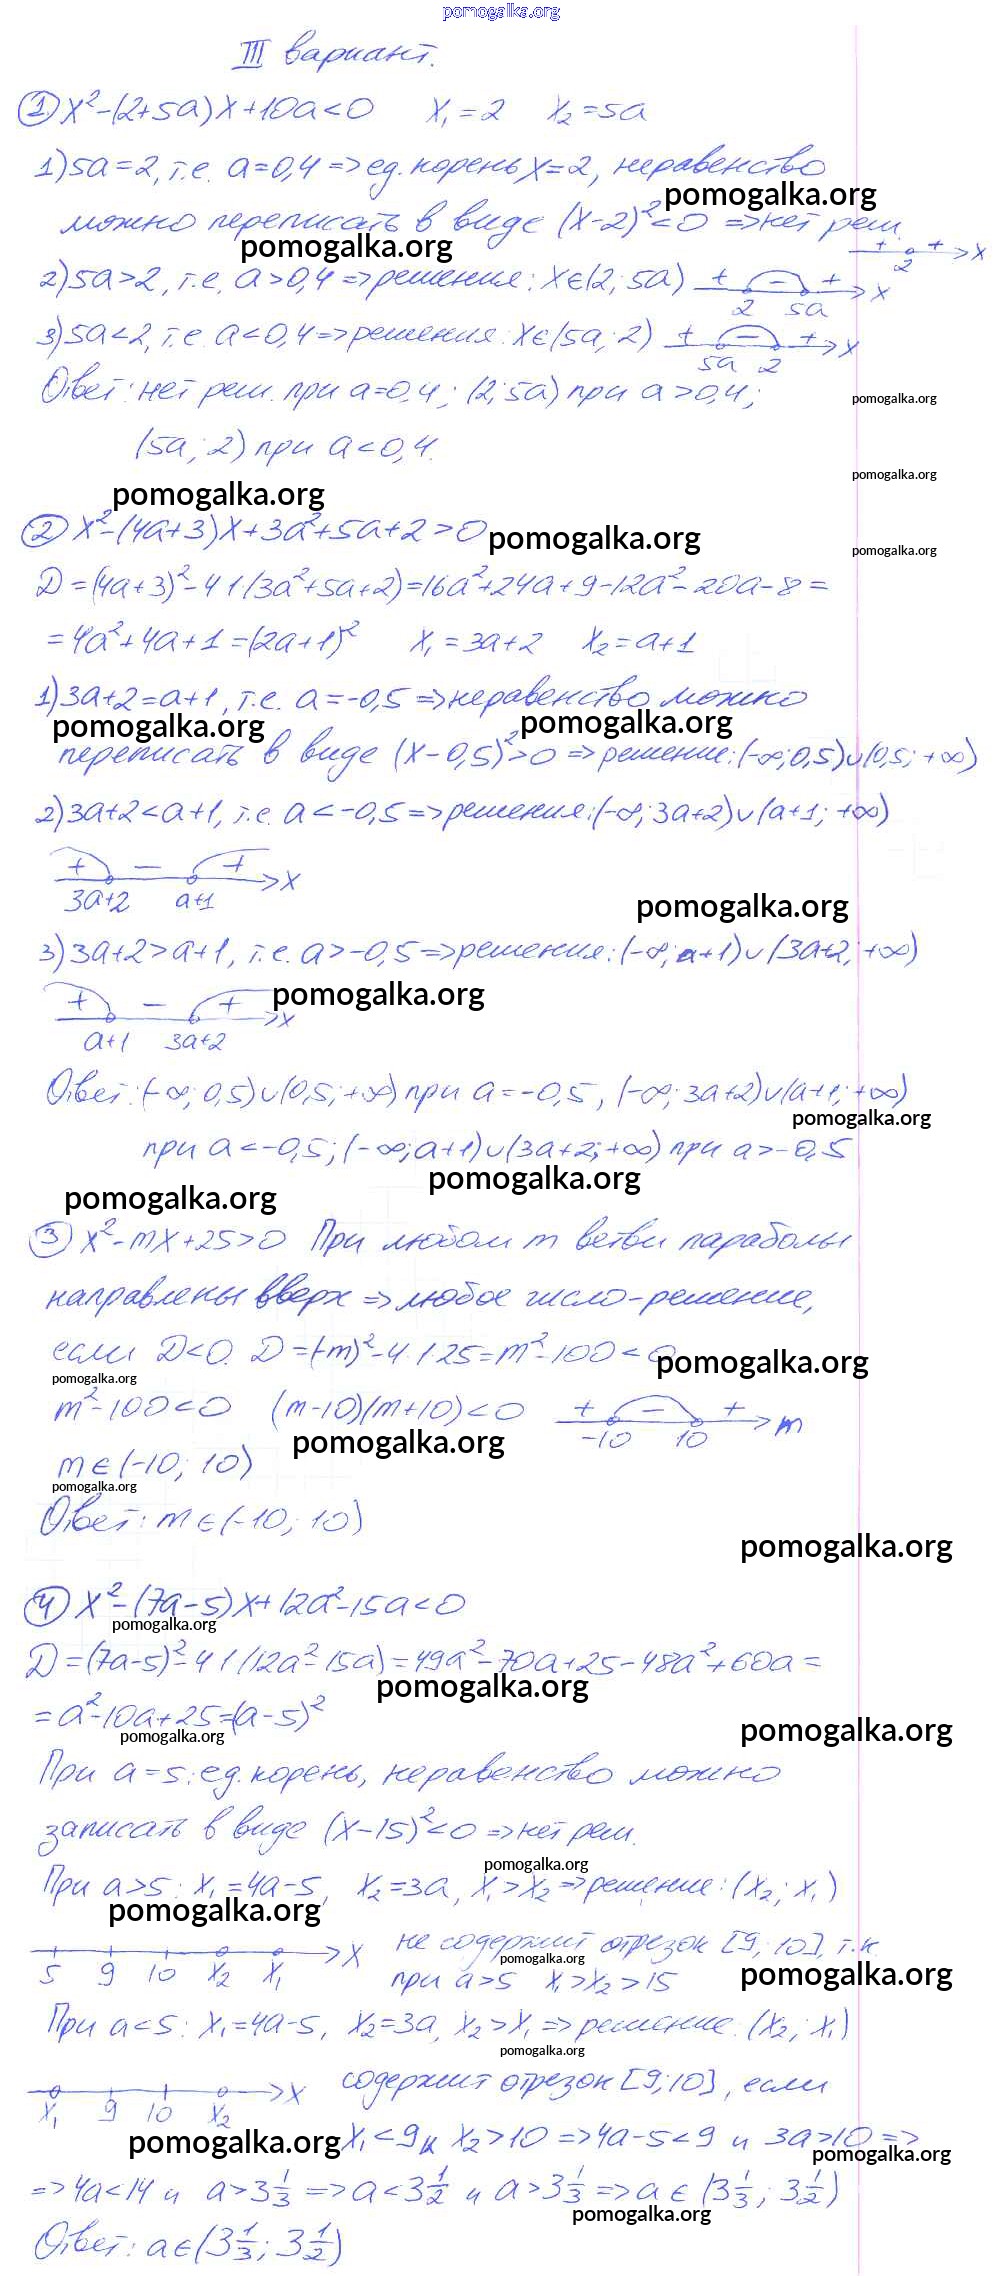 pomogalka.org
III вариант.
① x²-(2+5a)x+10a<0 x₁=2 x₂=5a
1) 5a=2, т.е. a=0,4 => ед. корень x=2, неравенство
pomogalka.org
можно переписать в виде (x-2)²<0 => нет реш.
pomogalka.org
+ + x
2
2) 5a>2, т.е. a>0,4 => решения: x∈(2; 5a) + - + x
2 5a
3) 5a<2, т.е. a<0,4 => решения: x∈(5a; 2) + - + x
5a 2
Ответ: нет реш. при a=0,4; (2; 5a) при a>0,4;
pomogalka.org
(5a; 2) при a<0,4.
pomogalka.org
pomogalka.org
② x²-(4a+3)x+3a²+5a+2>0
pomogalka.org
pomogalka.org
D=(4a+3)²-4·1·(3a²+5a+2)=16a²+24a+9-12a²-20a-8=
=4a²+4a+1=(2a+1)² x₁=3a+2 x₂=a+1
1) 3a+2=a+1, т.е. a=-0,5 => неравенство можно
pomogalka.org pomogalka.org
переписать в виде (x-0,5)²>0 => решение: (-∞; 0,5)∪(0,5; +∞)
2) 3a+2<a+1, т.е. a<-0,5 => решения: (-∞; 3a+2)∪(a+1; +∞)
+ - + x
3a+2 a+1
pomogalka.org
3) 3a+2>a+1, т.е. a>-0,5 => решения: (-∞; a+1)∪(3a+2; +∞)
pomogalka.org
+ - + x
a+1 3a+2
Ответ: (-∞; 0,5)∪(0,5; +∞) при a=-0,5, (-∞; 3a+2)∪(a+1; +∞)
pomogalka.org
при a<-0,5; (-∞; a+1)∪(3a+2; +∞) при a>-0,5
pomogalka.org
pomogalka.org
③ x²-mx+25>0 При любом m ветви параболы
направлены вверх => любое число-решение,
если D<0. D=(-m)²-4·1·25=m²-100<0
pomogalka.org
pomogalka.org
m²-100<0 (m-10)(m+10)<0 + - + m
-10 10
pomogalka.org
m∈(-10; 10)
pomogalka.org
Ответ: m∈(-10; 10)
pomogalka.org
④ x²-(7a-5)x+12a²-15a<0
pomogalka.org
D=(7a-5)²-4·1·(12a²-15a)=49a²-70a+25-48a²+60a=
pomogalka.org
=a²-10a+25=(a-5)²
pomogalka.org
pomogalka.org
При a=5: ед. корень, неравенство можно
записать в виде (x-15)²<0 => нет реш.
pomogalka.org
При a>5: x₁=4a-5, x₂=3a, x₁>x₂ => решение: (x₂; x₁)
pomogalka.org
x не содержит отрезок [9; 10], т.к.
5 9 10 x₂ x₁
pomogalka.org
при a>5 x₁>x₂>15
pomogalka.org
При a<5: x₁=4a-5, x₂=3a, x₂>x₁ => решение: (x₂; x₁)
pomogalka.org
x содержит отрезок [9; 10], если
x₁ 9 10 x₂
pomogalka.org
x₁<9 и x₂>10 => 4a-5<9 и 3a>10 =>
pomogalka.org
=> 4a<14 и a>3 1/3 => a<3 1/2 и a>3 1/3 => a∈(3 1/3; 3 1/2)
pomogalka.org
Ответ: a∈(3 1/3; 3 1/2)